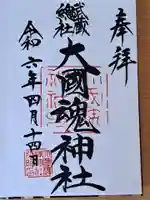 奉拝
武蔵
総社
大國魂神社
令和六年四月十四日